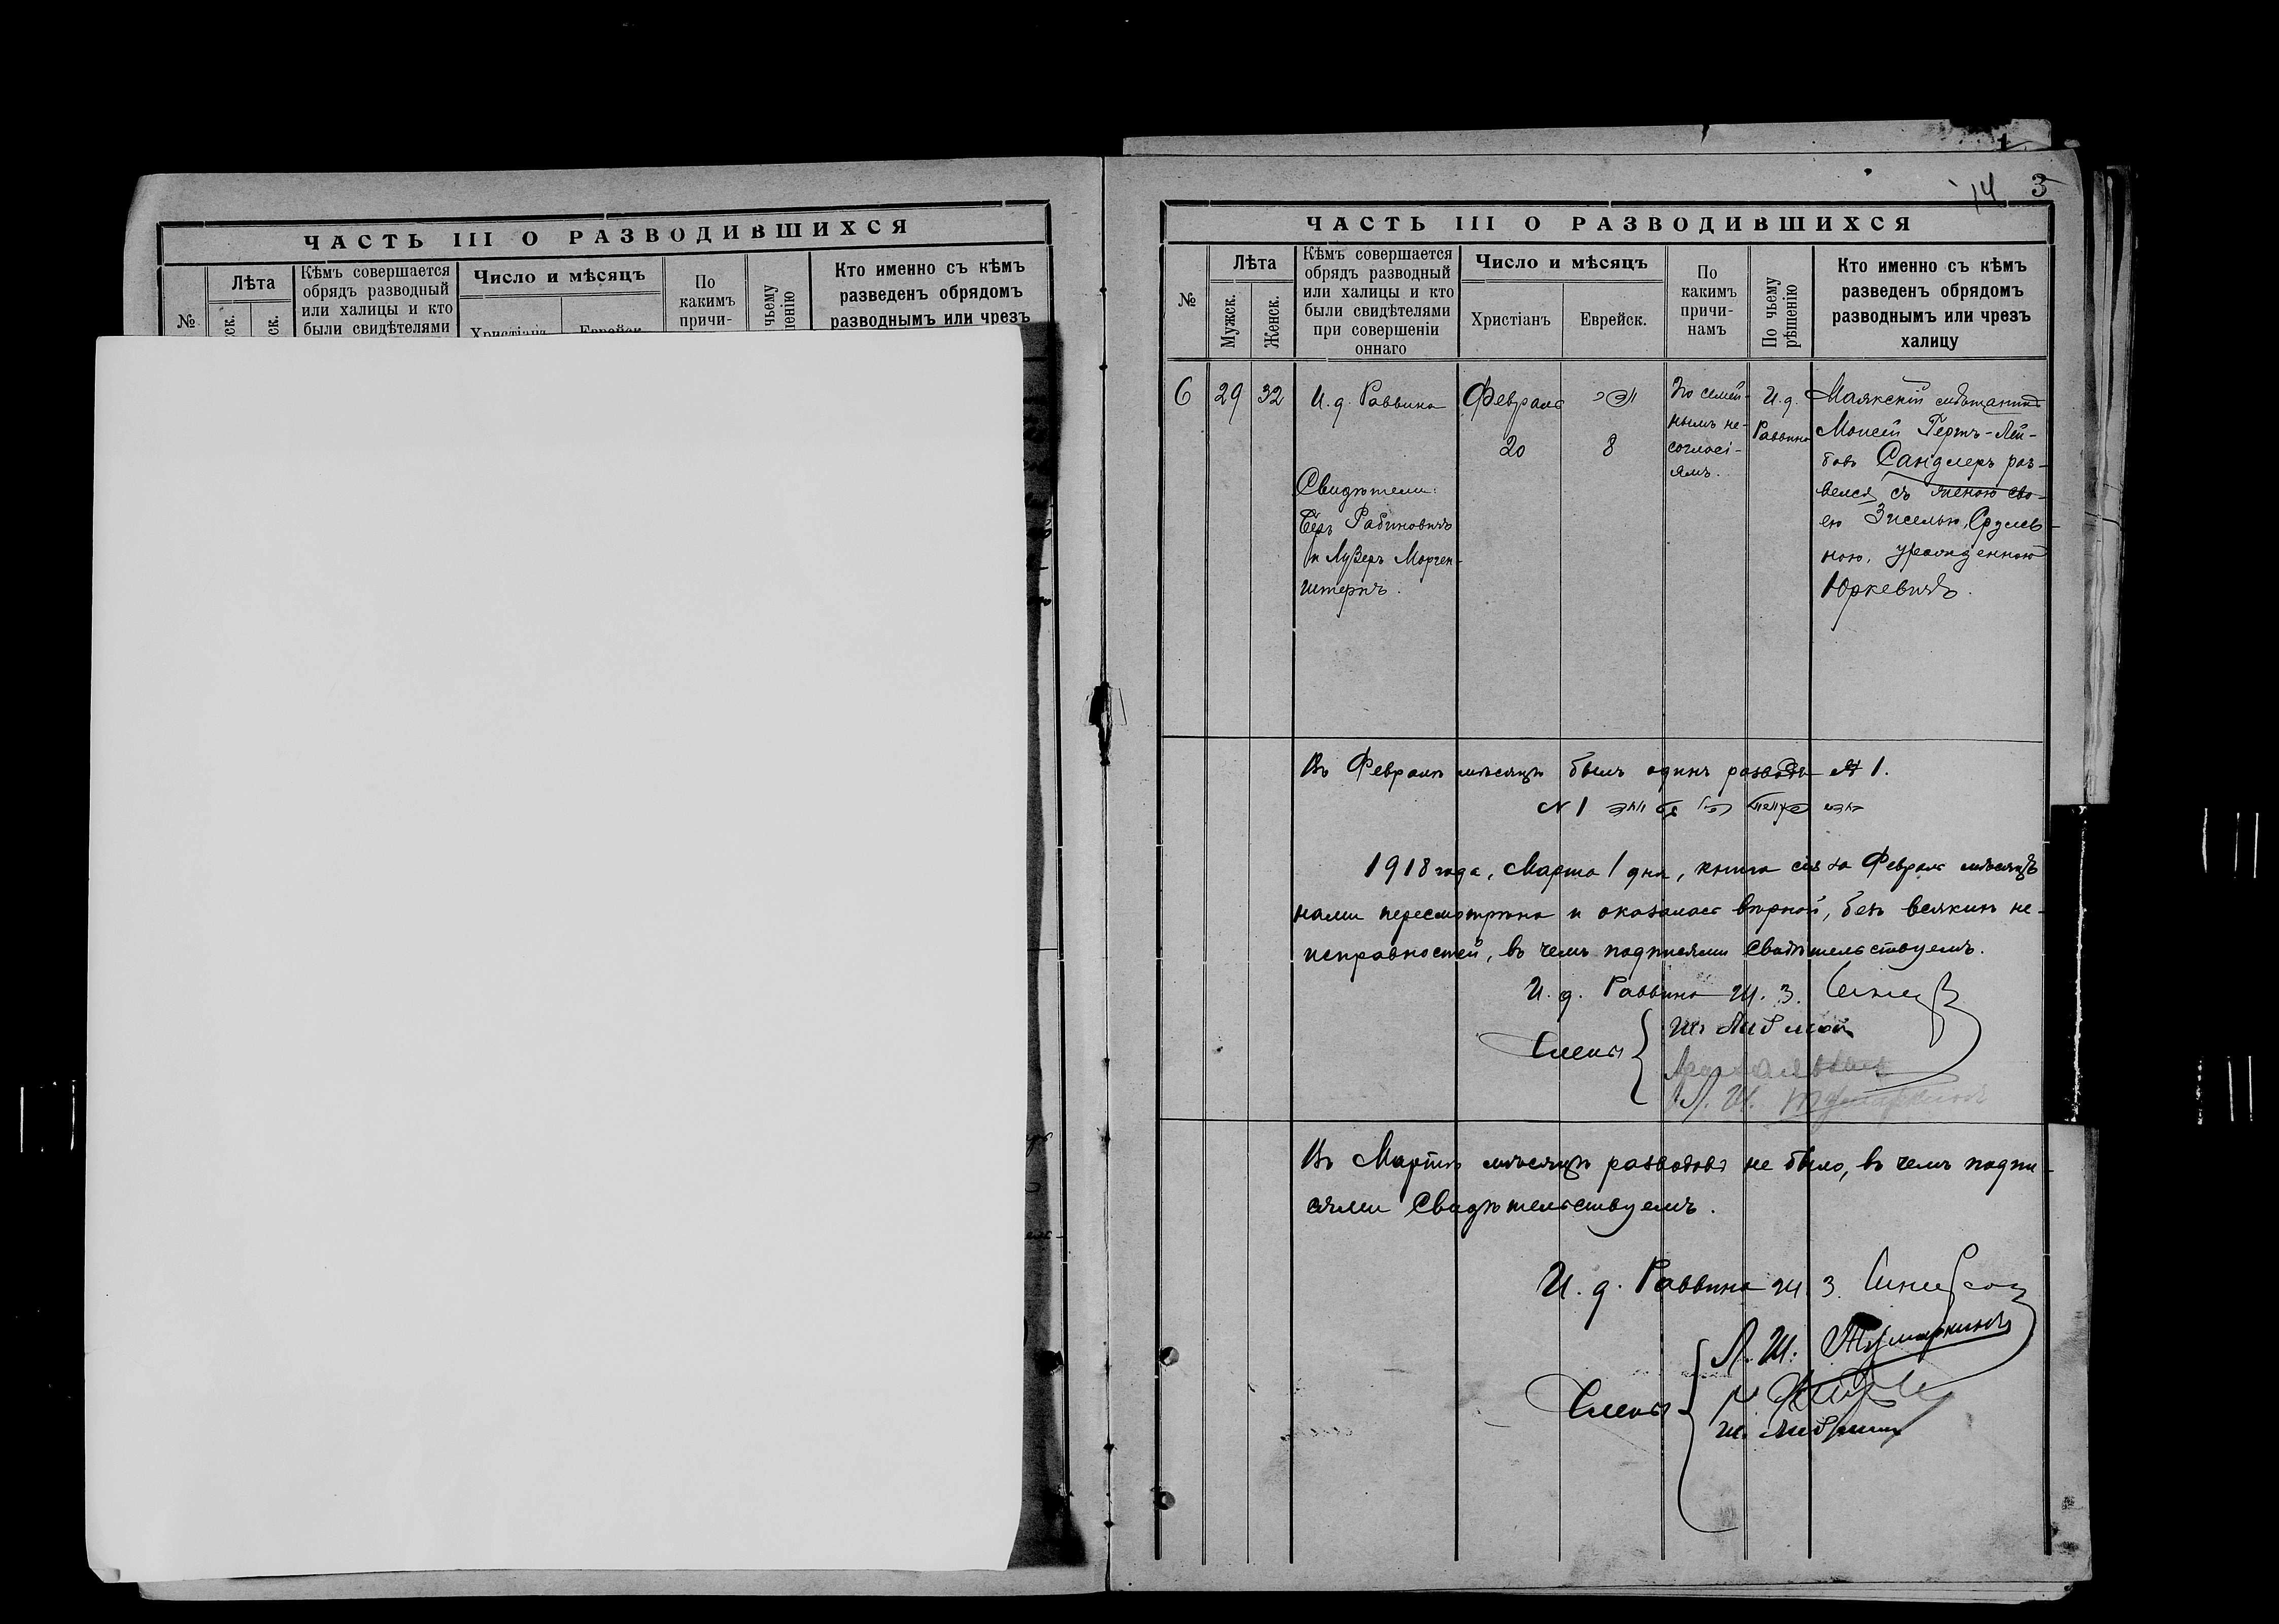 ЧАСТЬ III О РАЗВОДИВШИХСЯ
№
Лѣта
Кѣмъ совершается
обрядъ разводный
или халицы и кто
были свидѣтелями
Число и мѣсяцъ
По
какимъ
причи-
Кто именно съ кѣмъ
разведенъ обрядомъ
разводнымъ или чрезъ
14 3
ЧАСТЬ III О РАЗВОДИВШИХСЯ
№
Лѣта
Мужск.
Женск.
Кѣмъ совершается
обрядъ разводный
или халицы и кто
были свидѣтелями
при совершеніи
оннаго
Число и мѣсяцъ
Христіанъ
Еврейск.
По
какимъ
причи-
намъ
По чьему
рѣшенію
Кто именно съ кѣмъ
разведенъ обрядомъ
разводнымъ или чрезъ
халицу
6
29
32
И. д. Раввина
Свидѣтели:
Рабиновичъ
и Лузеръ Морген-
штернъ.
Февраль
20
8
По семей-
нымъ не-
согласі-
ямъ.
И. д.
Раввина
Маякскій мѣщанинъ
Моисей Гершъ-Лей-
бовъ Сандлеръ раз-
велся съ женою сво-
ею Зиселью Срулев-
ною, урожденною
Юркевичъ.
Въ Февралѣ мѣсяцѣ былъ одинъ разводъ № 1.
N 1
1918 года, Марта 1 дня, книга сія за Февраль мѣсяцъ
нами пересмотрѣна и оказалась вѣрной, безъ всякихъ не-
исправностей, въ чемъ подписями свидѣтельствуемъ.
И. д. Раввина Ш. З.
Члены
Л. Ш. Тумаркинъ
Въ Мартѣ мѣсяцѣ разводовъ не было, въ чемъ подпи-
сями свидѣтельствуемъ.
И. д. Раввина Ш. З.
Л. Ш. Тумаркинъ
Члены